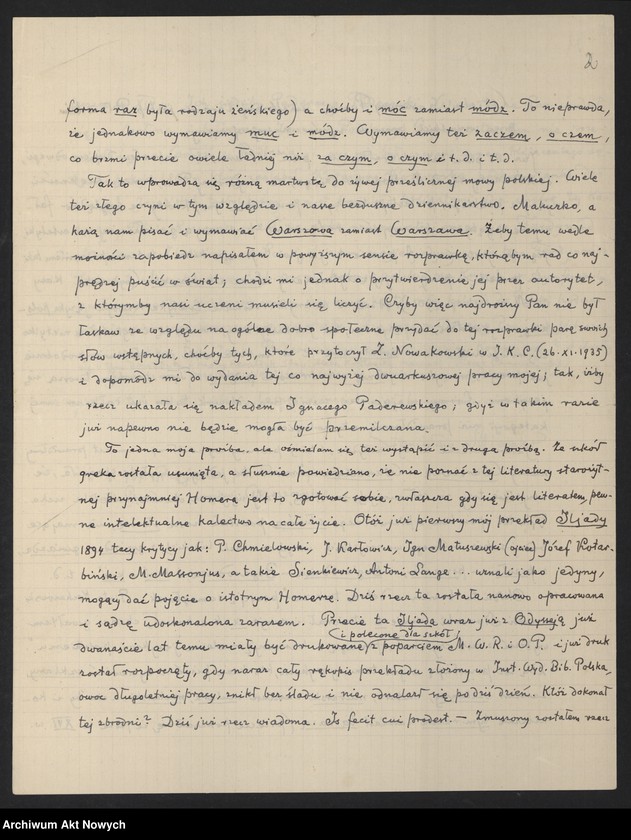 2
forma raz była rodzaju żeńskiego) a choćby i móc zamiast módz. To nieprawda,
że jednakowo wymawiamy muc i módz. Wymawiamy też zaczem, o czem,
co brzmi przecie owiele ładniej niż za czym, o czym i t. d. i t. d.
Tak to wprowadza się różną martwotę do żywej prześlicznej mowy polskiej. Wiele
też złego czyni w tym względzie i nasze bezduszne dziennikarstwo. Makuszko, a
każą nam pisać i wymawiać Warszową zamiast Warszawa. Żeby temu wedle
możności zapobiedz napisałem w powyższym sensie rozprawkę, którąbym rad co naj-
prędzej puścić w świat; chodzi mi jednak o przytwierdzenie jej przez autorytet,
z którymby nasi uczeni musieli się liczyć. Czyby więc najdroższy Pan nie był
łaskaw ze względu na ogólne dobro społeczne przydać do tej rozprawki parę swoich
słów wstępnych, choćby tych, które przytoczył Z. Nowakowski w I. K. C. (26.XI.1935)
i dopomódz mi do wydania tej co najwyżej dwuarkuszowej pracy mojej; tak, iżby
rzecz ukazała się nakładem Ignacego Paderewskiego; gdyż w takim razie
już napewno nie będzie mogła być przemilczana.
To jedna moja prośba, ale ośmielam się też wystąpić i z drugą prośbą. Ze szkół
greka została usunięta, a słusznie powiedziano, że nie poznać z tej literatury starożyt-
nej przynajmniej Homera jest to zgotować sobie, zwłaszcza gdy się jest literatem, pew-
ne intelektualne kalectwo na całe życie. Otóż już pierwszy mój przekład Iljady
1894 tacy krytycy jak: P. Chmielowski, J. Karłowicz, Ign Matuszewski (ojciec) Józef Kotar-
biński, M. Massonjus, a także Sienkiewicz, Antoni Lange ... uznali jako jedyny,
mogący dać pojęcie o istotnym Homerze. Dziś rzecz ta została nanowo opracowana
i sądzę udoskonalona zarazem. Przecie ta Iljada wraz już z Odysseją już
(i polecone dla szkół)
dwanaście lat temu miały być drukowane z poparciem M. W. R. i O. P. i już druk
został rozpoczęty, gdy naraz cały rękopis przekładu złożony w Inst. Wyd. Bib. Polska,
owoc długoletniej pracy, znikł bez śladu i nie odnalazł się po dziś dzień. Któż dokonał
tej zbrodni? Dziś już rzecz wiadoma. Is fecit cui prodest. — Zmuszony zostałem rzecz
Archiwum Akt Nowych